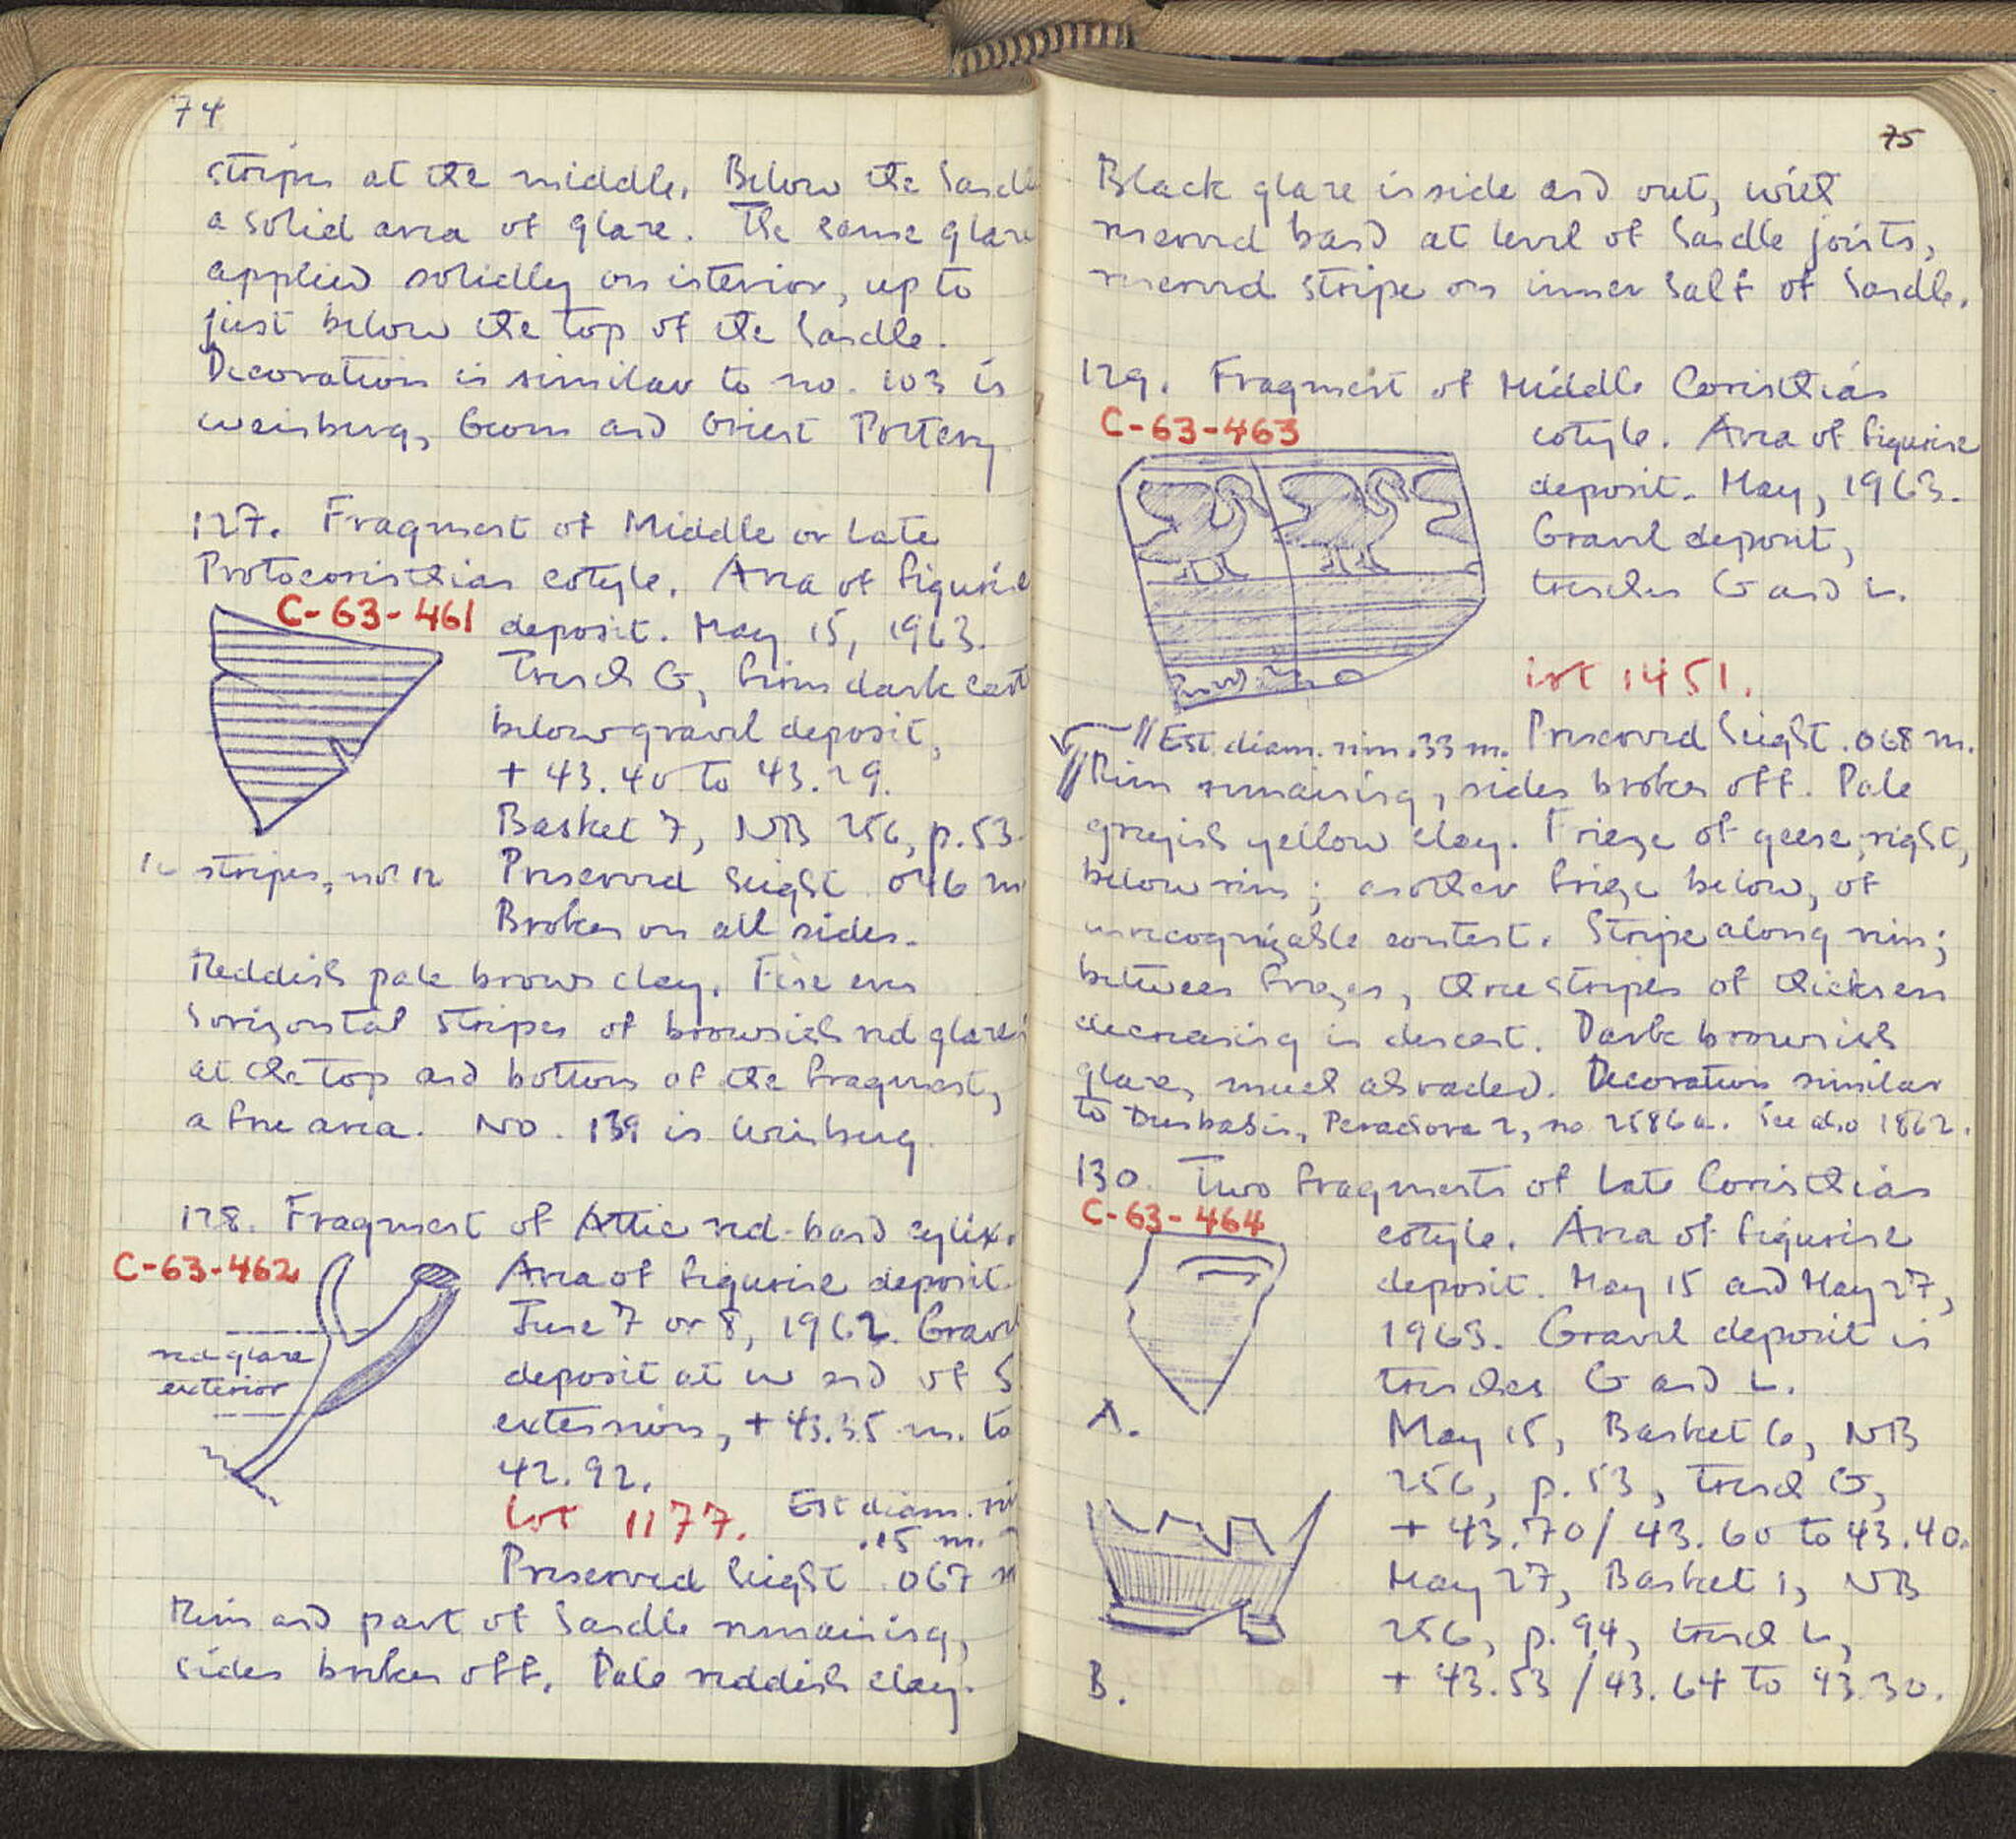 74
stripes at the middle. Below the handle
a solid area of glaze. The same glaze
applied solidly on interior, up to
just below the top of the handle.
Decoration is similar to no. 103 in
Weinberg, Geom and Orient Pottery
127. Fragment of Middle or Late
Protocorinthian cotyle. Area of figurine
C-63-461
deposit. May 15, 1963.
Trench G, from dark earth
below gravel deposit,
+ 43.40 to 43.29.
Basket 7, NB 256, p. 53.
stripes, not 12
Preserved height .046 m
Broken on all sides.
Reddish pale brown clay. Fine even
horizontal stripes of brownish red glaze;
at the top and bottom of the fragment,
a free area. No. 139 in Weinberg.
128. Fragment of Attic red-band cylix.
C-63-462
Area of figurine deposit.
June 7 or 8, 1962. Gravel
red glaze
exterior
deposit at W end of S
extension, + 43.35 m. to
42.92.
Lot 1177.
Est diam.
.15 m.
Preserved height .067 m
Rim and part of handle remaining,
sides broken off. Pale reddish clay.
75
Black glaze inside and out, with
reserved band at level of handle joints,
reserved stripe on inner half of handle.
129. Fragment of Middle Corinthian
C-63-463
cotyle. Area of figurine
deposit. May, 1963.
Gravel deposit,
trenches G and L.
lot 1451.
// Est. diam. rim .33 m. Preserved height .068 m.
// Rim remaining, sides broken off. Pale
greyish yellow clay. Frieze of geese, right,
below rim; another frieze below, of
unrecognizable content. Stripe along rim;
between friezes, three stripes of thickness
decreasing in descent. Dark brownish
glaze, much abraded. Decoration similar
to Dunbabin, Perachora 2, no 2586a. See also 1862.
130. Two fragments of Late Corinthian
C-63-464
cotyle. Area of figurine
deposit. May 15 and May 27,
1963. Gravel deposit in
trenches G and L.
A.
May 15, Basket 6, NB
256, p. 53, trench G,
+ 43.70 / 43.60 to 43.40.
May 27, Basket 1, NB
256, p. 94, trench L,
B.
+ 43.53 / 43.64 to 43.30.